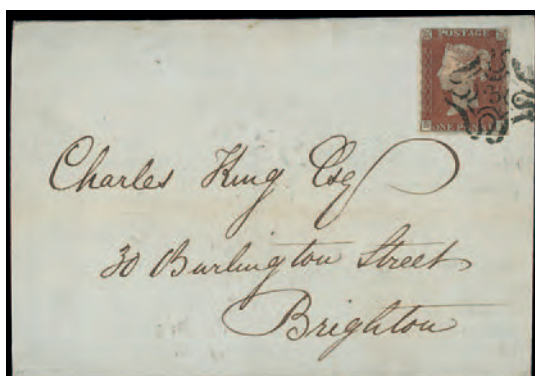 POSTAGE
ONE PEN
Charles King Esq
30 Burlington Street
Brighton